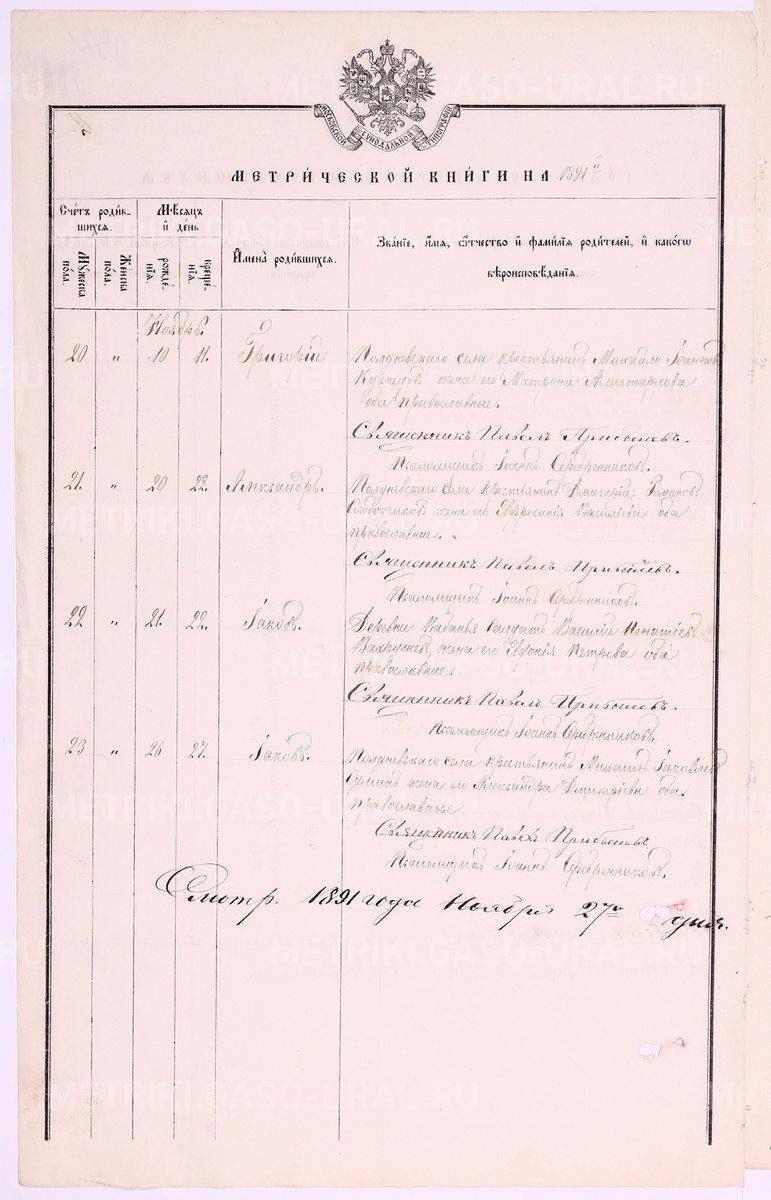 МОСКОВСКОЙ СѴНОДАЛЬНОЙ ТИПОГРАФІИ
МЕТРИ́ЧЕСКОЙ КНИ́ГИ НА 1891й
Сче́тъ роди́вшихсѧ.
Мꙋ́жеска пола.
Же́нска по́ла.
Мѣ́сѧцъ и҆ де́нь
рожде́нїѧ.
креще́нїѧ.
И҆мена̀ роди́вшихсѧ.
Зва́нїе, и҆́мѧ, ѻ҆́тчество и҆ фами́лїѧ роди́телей, и҆ како́гѡ вѣроисповѣ́данїѧ.
Ноябрь.
20 " 10 11. Григорій Полдневскаго села крестьянинъ Михаило Іоанновъ
Кузнецовъ жена его Матрона
оба православные.
Священникъ Павелъ Прибылевъ.
Псаломщикъ Іоаннъ Серебренниковъ.
21. " 20 22. Александръ. Полдневскаго села крестьянинъ Дмитрій Романовъ
жена его Евфросинія Василіева оба
православные.
Священникъ Павелъ Прибылевъ.
Псаломщикъ Іоаннъ Серебренниковъ.
22 " 21. 22. Іаковъ. Деревни Кабанья Солдатъ Василій Игнатіевъ
Вахрушевъ, жена его Евдокія Петрова оба
православные.
Священникъ Павелъ Прибылевъ.
Псаломщикъ Іоаннъ Серебренниковъ.
23 " 26 27. Іаковъ. Полдневскаго села крестьянинъ Михаилъ Іаковлевъ
жена его Александра Дмитріева оба
православные
Священникъ Павелъ Прибылевъ
Псаломщикъ Іоаннъ Серебренниковъ.
Смотр. 1891 года Ноября 27го дня.
METRIKI.GASO-URAL.RU